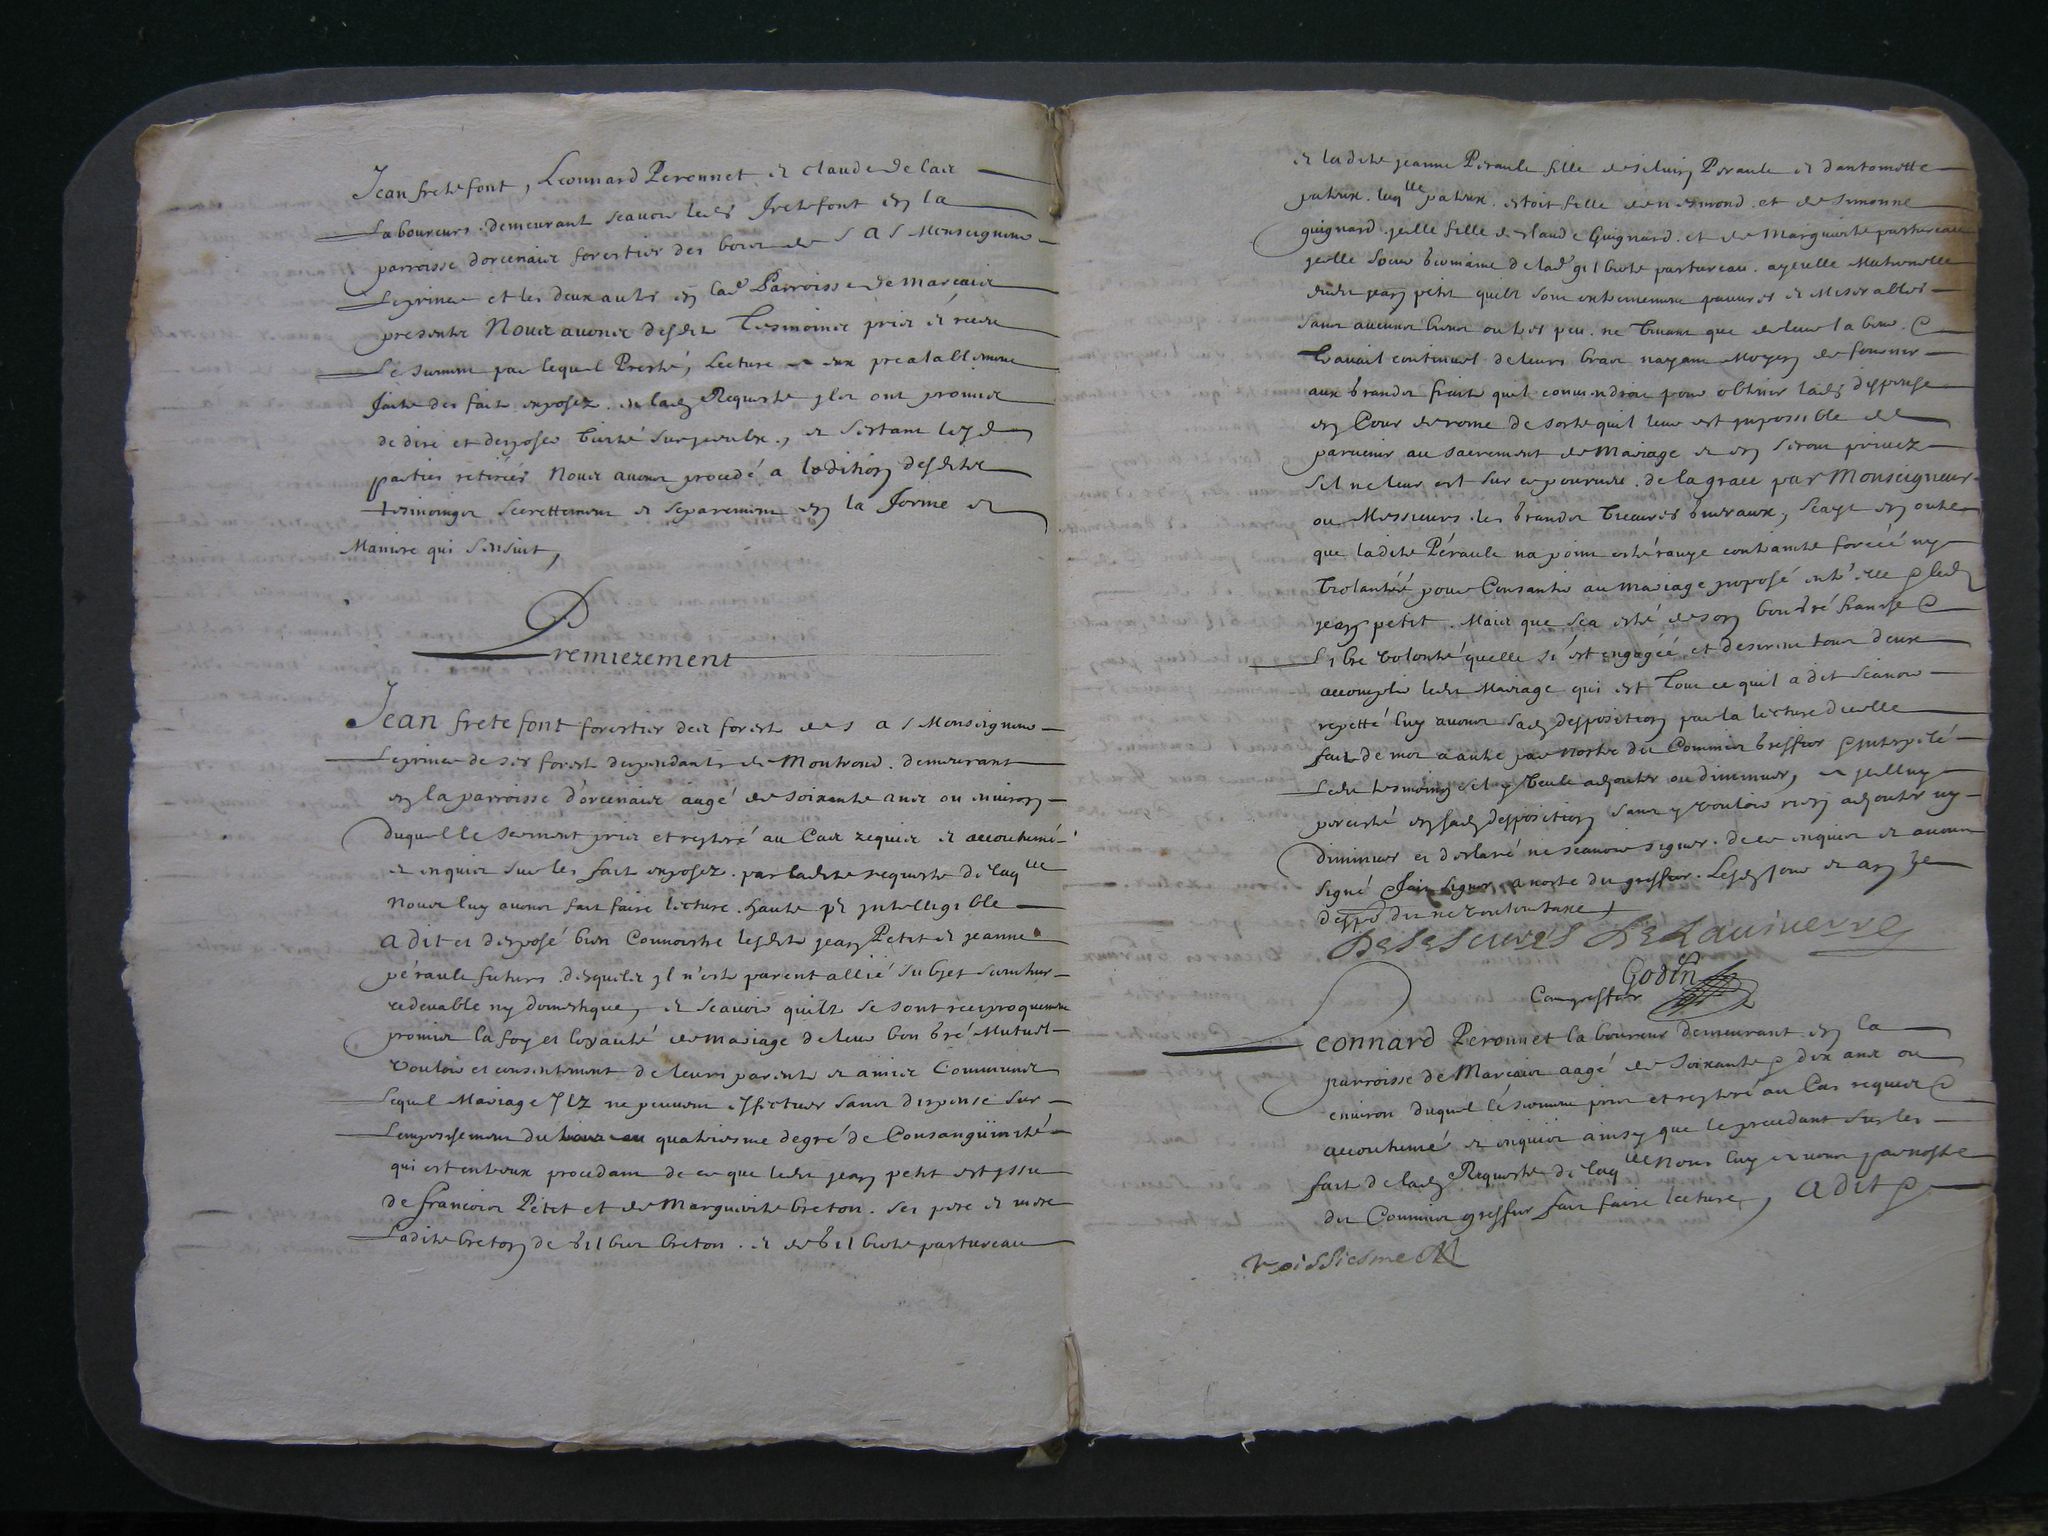 Jean fretefont, Leonnard Peronnet et claude de lair
Laboureurs demeurant scavoir ledit fretefont en la
parroisse dorcenaix forestier des bois de S A S Monseigneur
Leprince et les deux autres en lad Parroisse de marcaix
presents Nous avons desdits tesmoings pris et receu
Le serment par lequel Presté, Lecture a eux prealablement
faite des fait exposez en lad Requeste ils ont promis
de dire et deposer verité sur iceulx, et sestant lesd
parties retirées Nous avons procedé a ladition desdits
tesmoings secrettement et separement en la forme et
Maniere qui sensuit,
Premierement
Jean fretefont forestier des forests de S A S Monseigneur
Leprince de ses forest dependants de Montrond demeurant
en la parroisse d'orcenaix aagé de soixante ans ou environ
duquel le serment pris et reytéré au Cas requis et accoutumé
et enquis sur les fait exposez par ladite requeste de laqlle
Nous luy avons fait faire lecture haute et Intelligible
a dit et deposé bien Connoistre lesdits jean Petit et jeanne
péraule futurs desquels il n'est parent allié subjet serviteur
redevable ny domestique, et scavoir quils se sont reciproquement
promis la foy et loyauté de mariage de leur bon gré Mutuel
vouloir et consentement de leurs parents et amis Communs
Lequel Mariage Ilz ne peuvent effectuer sans dispense sur
Lempeschement du quatriesme degré de Consanguinité
qui est entreux procedant de ce que ledit jean petit est yssu
de francois Petit et de Marguerite breton ses pere et mere
Ladite breton de gilber breton et de gilberte partureau
et ladite jeanne Peraule fille de silvin Peraule et dantoinette
patrix laqlle patrix estoit fille de et de simonne
guignard jcelle fille de claude Guignard et de Marguerite partureau
jcelle soeur germaine de lad gilberte partureau ayeulle Maternelle
dudit jean petit quils sont extremement pauvres et Miserables
sans aucuns biens ou tres peu ne vivant que de leur labeur &
travail continuel de leurs bras nayant Moyen de fournir
aux grands fraits quil conviendroit pour obtenir ladite dispense
en Cour de rome de sorte quil leur est impossible de
parvenir au sacrement de Mariage et en seront privez
sil ne leur est sur ce pourveu de la grace par Monseigneur
ou Messieurs les grands vicaires generaux, scayt en outre
que ladite Péraule na point esté ravye contrainte forcéé ny
violantéé pour Consantir au mariage proposé entre elle & led
jean petit Mais que sca esté de son bon gré franche &
Libre volonté quelle s'est engagéé et desirent tous deux
accomplir ledit Mariage qui est tout ce quil a dit scavoir
repetté luy avons sad desposition par la lecture dicelle
fait de mot a autre par nostre dit Commis greffier & interpelé
Ledit tesmoing sil y veult adjouter ou diminuer, a jcelluy
percisté en sad desposition sans y vouloir rien adjouter ny
diminuer et declaré ne scavoir signer de ce enquis et avons
signé & fait signer a nostre dit greffier Lesd jour et an &
desposant ne voulu taxe
Godin
Comgreffier
Leonnard Peronnet laboureur demeurant en la
parroisse de Marcaix aagé de soixante & dix ans ou
environ duquel le serment pris et reytéré au Cas requis &
accoutumé et enquis ainsy que le precedant sur les
fait de lad Requeste de laqlle Nous luy avons par nostre
dit Commis greffier fait faire lecture, a dit &